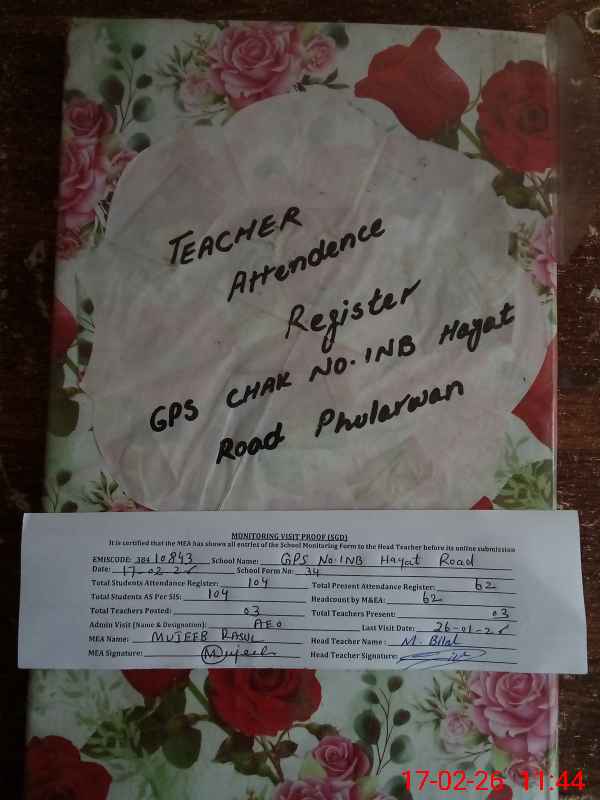 TEACHER
Attendence
Register
GPS CHAK NO.1NB Hayat
Road Phularwan
MONITORING VISIT PROOF (SGD)
It is certified that the MEA has shown all entries of the School Monitoring Form to the Head Teacher before its online submission
EMISCODE: 384 10843 School Name: GPS No.1NB Hayat Road
Date: 17-02-26 School Form No: 34
Total Students Attendance Register: 104 Total Present Attendance Register: 62
Total Students AS Per SIS: 104 Headcount by M&EA: 62
Total Teachers Posted: 03 Total Teachers Present: 03
Admin Visit (Name & Designation): AEO Last Visit Date: 26-01-26
MEA Name: MUJEEB RASUL Head Teacher Name: M. Bilal
MEA Signature: Mujeeb Head Teacher Signature:
17-02-26 11:44